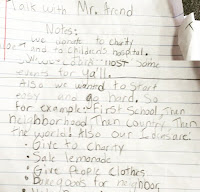 Talk with Mr. Arend
Notes:
we donate to charity
and to children's hospital.
We could host some
servants for ya'll.
Also we wanted to start
and go hard. So
for example: First School, Then
neighborhood Then country, Then
the world. Also our Ideas are:
• Give to charity
• Sale lemonade
• Give People clothes.
• Dance goods for neighbor